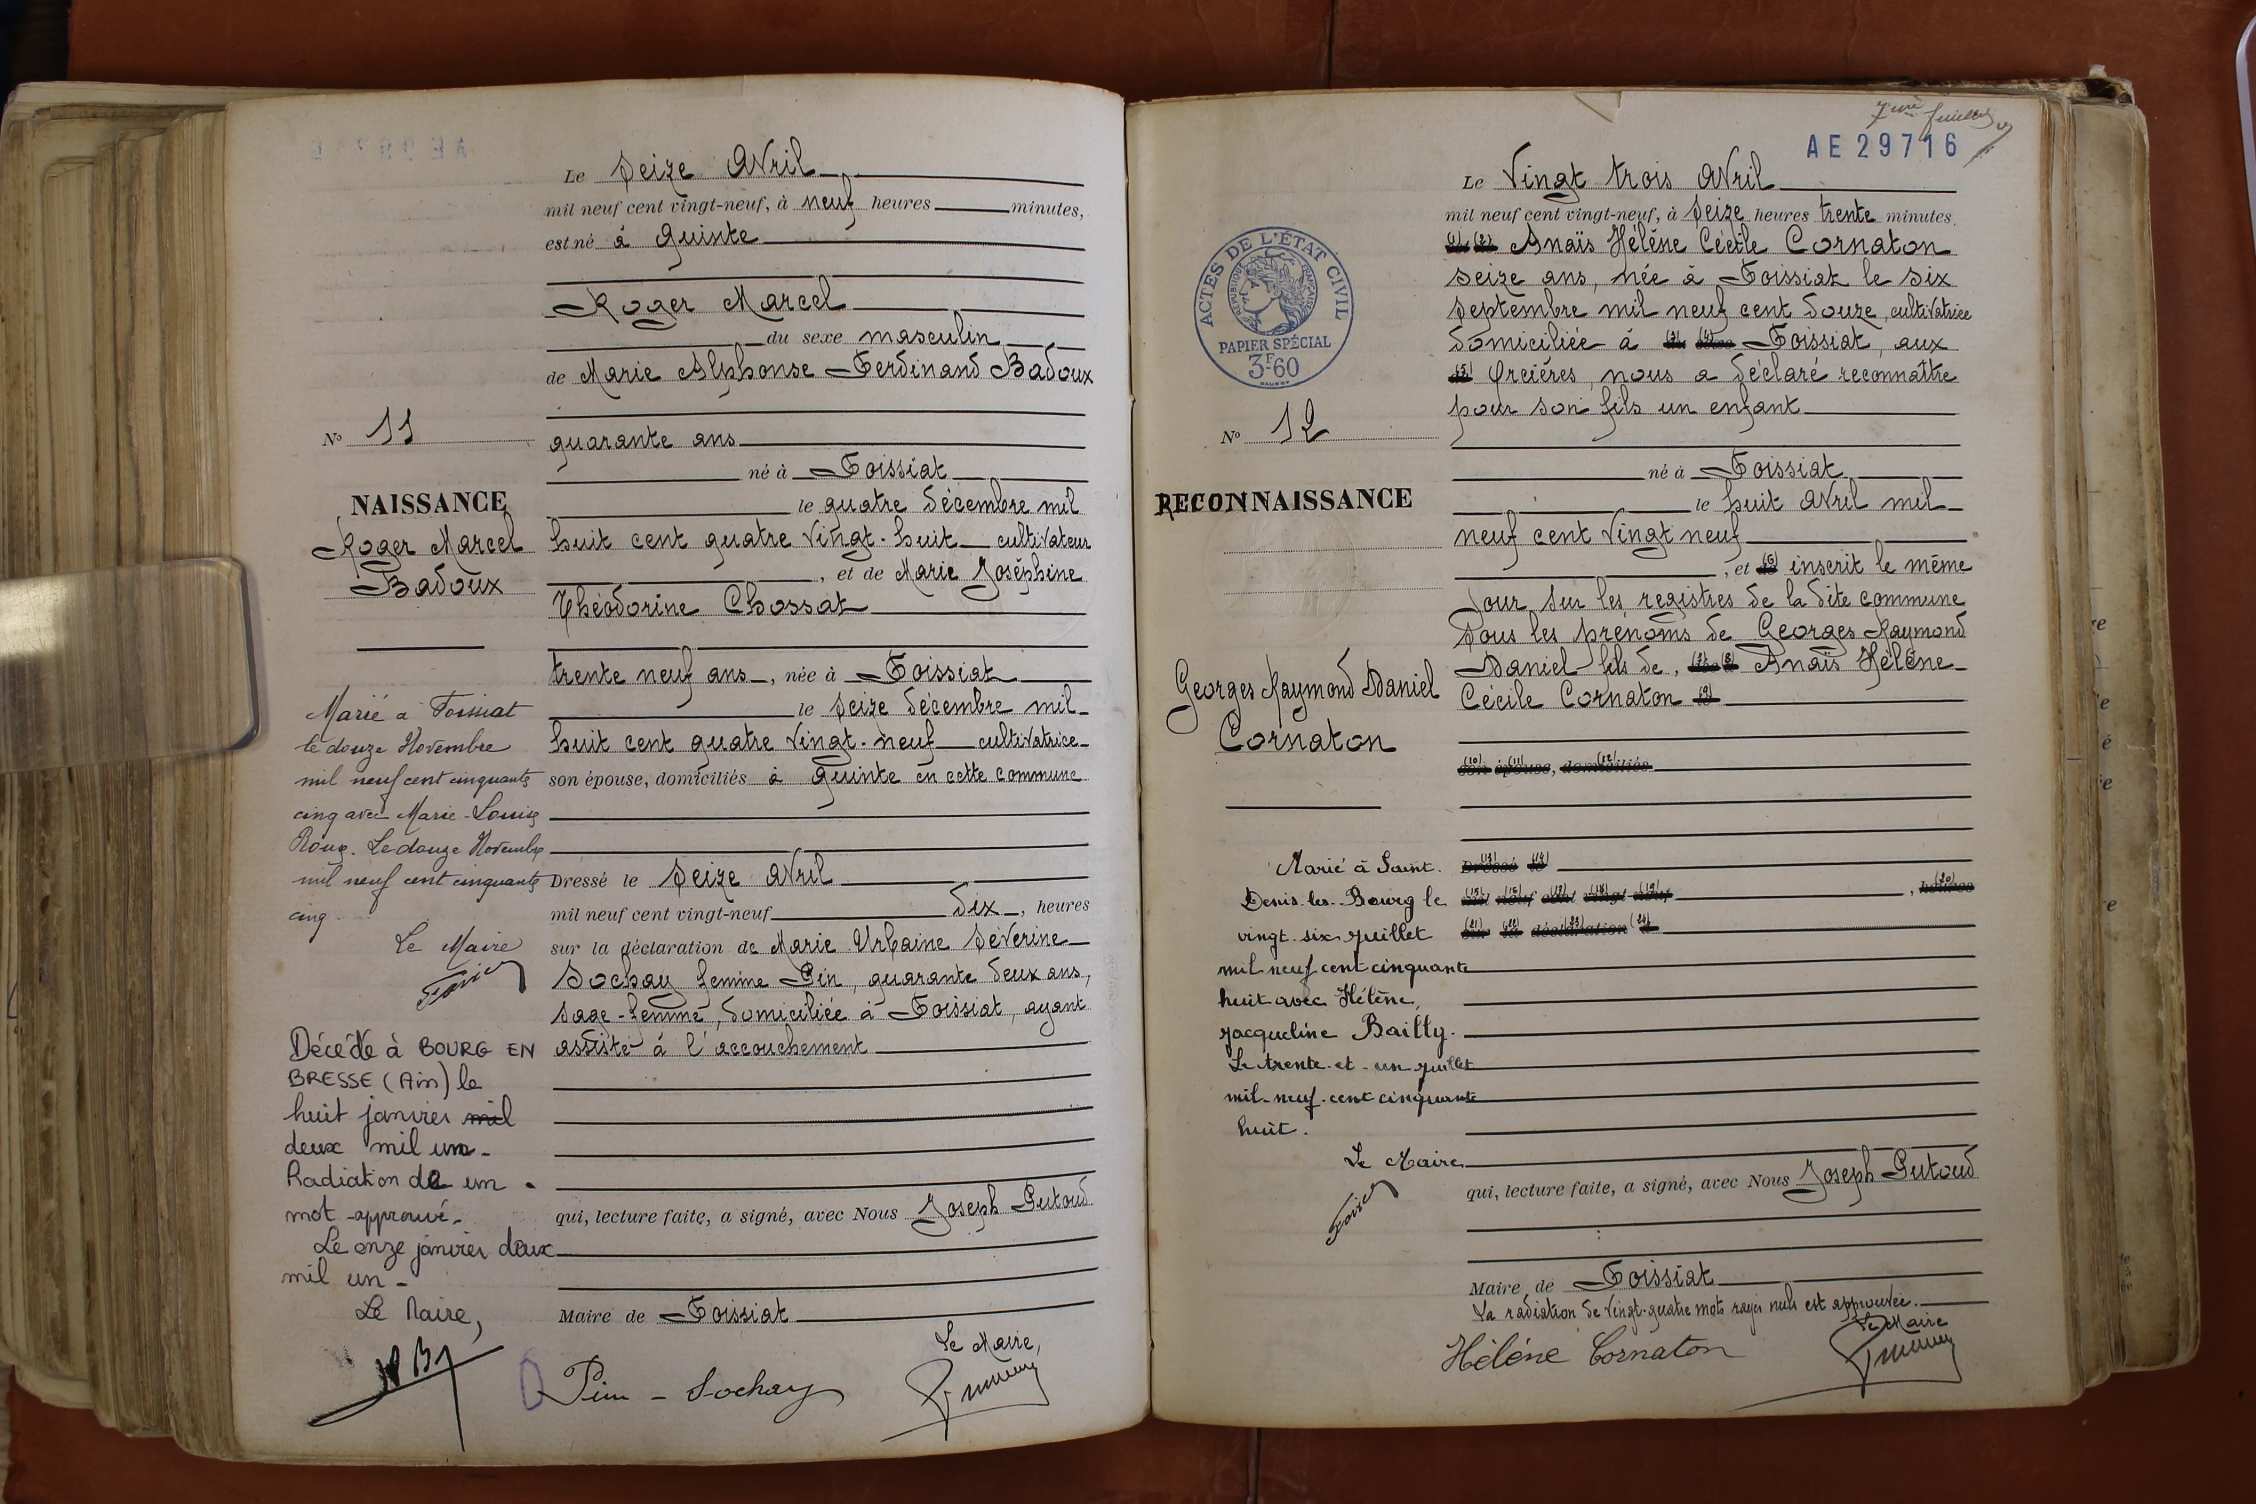 Le Seize Avril
mil neuf cent vingt-neuf, à neuf heures minutes,
est né à Quinte
Roger Marcel
du sexe masculin
de Marie Alphonse Ferdinand Badoux
N° 11
quarante ans
né à Foissiat
NAISSANCE
le quatre décembre mil
Roger Marcel
huit cent quatre vingt-huit cultivateur
Badoux
, et de Marie Joséphine
Théodorine Chossat
trente neuf ans, née à Foissiat
le seize décembre mil
huit cent quatre vingt-neuf cultivatrice
son épouse, domiciliés à Quinte en cette commune
Dressé le Seize Avril
mil neuf cent vingt-neuf dix, heures
sur la déclaration de Marie Urbaine Séverine
Sochay femme Pin, quarante deux ans,
sage-femme, domiciliée à Foissiat, ayant
assisté à l'accouchement
qui, lecture faite, a signé, avec Nous Joseph Putoud
Maire de Foissiat
Le Maire,
Pin - Sochay
Marié à Foissiat
le douze Novembre
mil neuf cent cinquante
cinq avec Marie-Louise
Roux. Le douze Novembre
mil neuf cent cinquante
cinq.
Le Maire
Décédé à BOURG EN
BRESSE (Ain) le
huit janvier mil
deux mil un-
Radiation de un
mot approuvé-
Le onze janvier deux
mil un-
Le Maire,
7ème feuillet
AE 29716
Le Vingt trois Avril
mil neuf cent vingt-neuf, à Seize heures trente minutes
(1) (2) Anaïs Hélène Cécile Cornaton
seize ans, née à Foissiat le six
septembre mil neuf cent douze, cultivatrice
domiciliée à (3) (4) Foissiat, aux
(5) Orcières, nous a déclaré reconnaître
pour son fils un enfant
ACTES DE L'ÉTAT CIVIL
RÉPUBLIQUE FRANÇAISE
PAPIER SPÉCIAL
3F60
N° 12
né à Foissiat
RECONNAISSANCE
le huit Avril mil
neuf cent vingt neuf
, et (6) inscrit le même
jour sur les registres de la dite commune
sous les prénoms de Georges Raymond
Daniel fils de, (7) (8) Anaïs Hélène
Cécile Cornaton (9)
Georges Raymond Daniel
Cornaton
son épouse, domiciliés (10) (11) (12)
Dressé le (13) (14)
mil neuf cent vingt-neuf (15) (16) (17) (18) (19) , heures (20)
sur la déclaration de (21) (22) (23) (24)
Marié à Saint-
Denis-les-Bourg le
vingt-six juillet
mil neuf cent cinquante
huit avec Hélène,
Jacqueline Bailly.
Le trente-et-un juillet
mil-neuf-cent cinquante
huit.
Le Maire
qui, lecture faite, a signé, avec Nous Joseph Putoud
Maire de Foissiat
La radiation de vingt-quatre mots rayés nuls est approuvée.
Le Maire
Hélène Cornaton